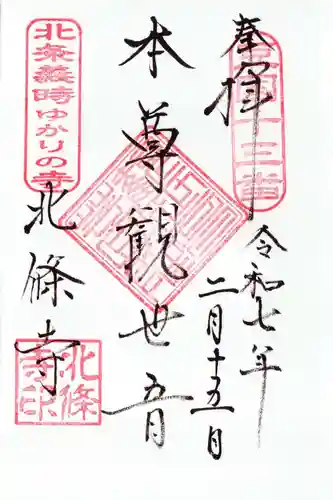 奉拝
令和七年
二月十五日
本尊観世音
北條寺
北条義時ゆかりの寺
北條寺印